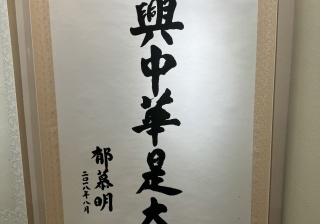 興中華是大
郁慕明
二〇一八年八月